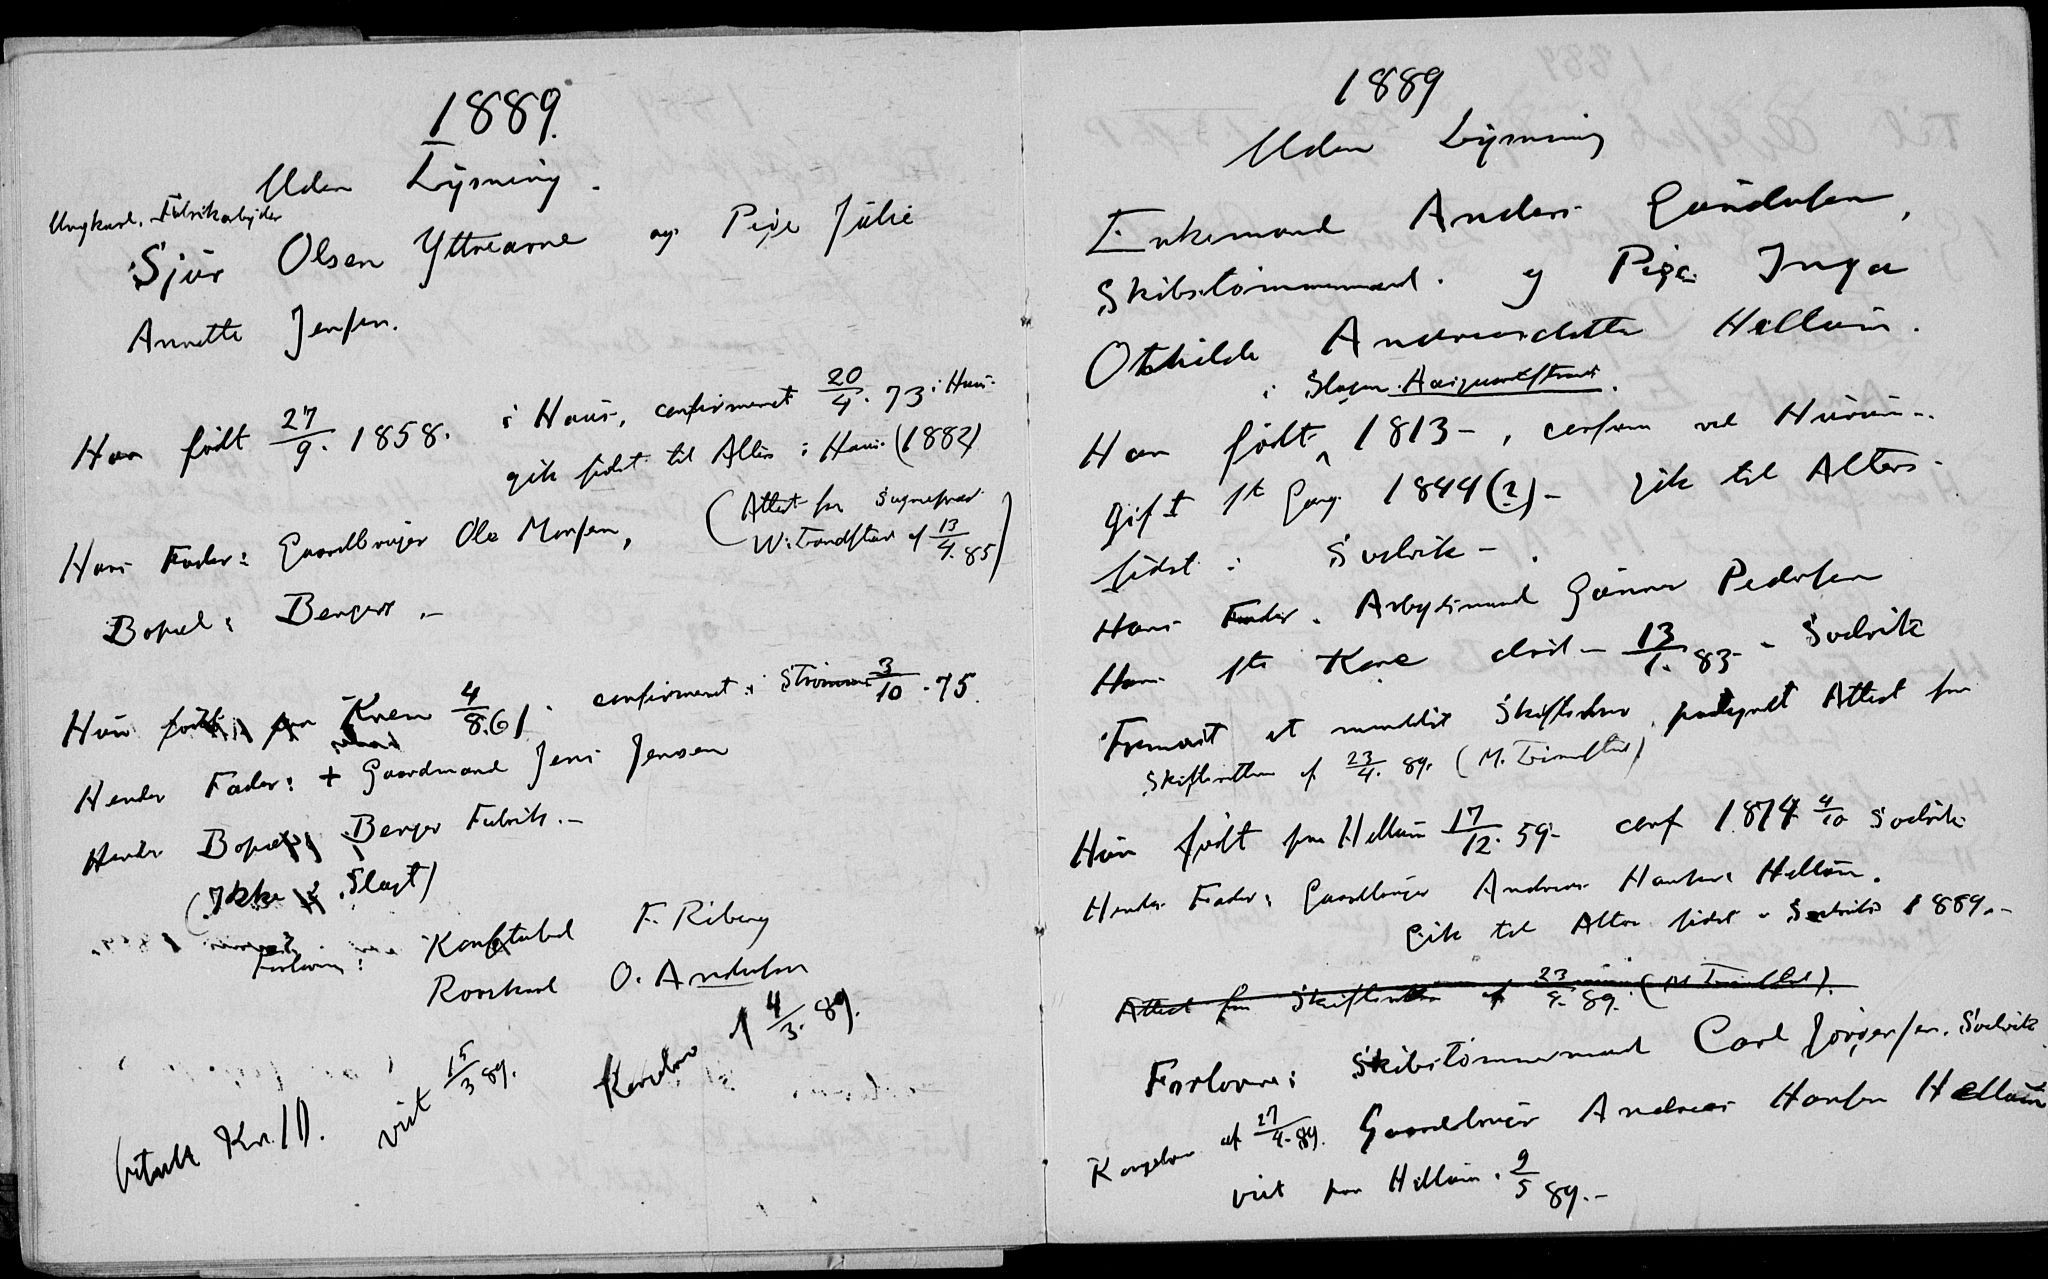 1889.
Uden Lysning.
Ungkarl, Fabrikarbejder
Sjur Olsen Yttrearne og Pige Julie
Annette Jensen.
Han født 27/9. 1858. i Haus, confirmeret 20/4. 73 i Haus
gik sidst til Alters i Haus (1882)
Hans Fader: Gaardbruger Ole Monsen,
(Attest fra Sognepræst
af 13/4. 85)
Bopæl: Berger. –
Hun født paa Kren 4/8. 61. confirmeret i Strømm 3/10. 75.
Hendes Fader: + Gaardmand Jens Jensen
Hendes Bopæl: Berger Fabrik. –
(Ikke i Slægt)
Forlovere: Konstabel F. Riberg
Roerskarl O. Andersen
Kongebrev af 4/3. 89.
viet 15/3 89.
betalt Kr. 10.
1889
Uden Lysning
Enkemand Anders Gundersen,
Skibstømmermand. og Pige Inga
Othilde Andreasdatter Hellum.
i Slagen
Han født 1813 –, confirm ved Hurum –
Gift 1ste Gang 1844 (?) – Gik til Alters
sidst i Svelvik –.
Hans Fader. Arbejdsmand Gunner Pedersen
Hans 1ste Kone død – 13/1. 83 – Svelvik
Fremvist et anmeldt Skiftebrev, paategnet Attest fra
Skifteretten af 23/4. 89.
Hun født paa Hellum 17/12. 59 – conf 1874 4/10 Svelvik
Hendes Fader: Gaardbruger Andreas Hansen Hellum.
Gik til Alters sidst i Svelvik 1889. –
Attest fra Skifteretten af 23/4. 89.
Forlovere: Skibstømmermand Carl Jørgensen. Svelvik
Kongebrev af 27/4. 89. Gaardbruger Andreas Hansen Hellum
viet paa Hellum. 9/5 89. –